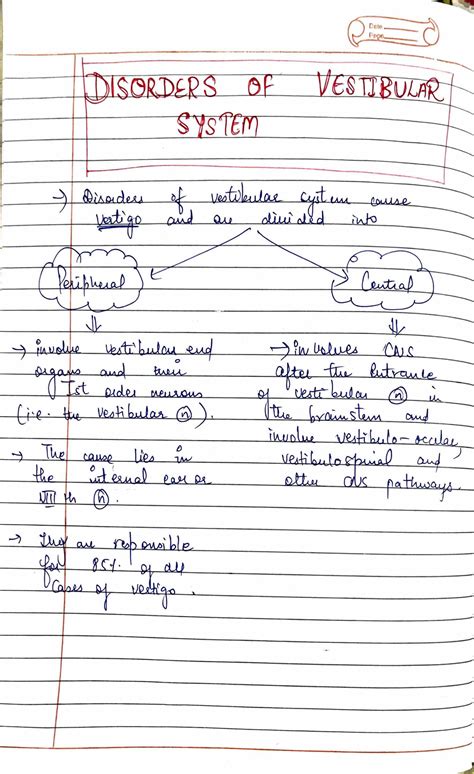 Date
Page
DISORDERS OF VESTIBULAR
SYSTEM
→ Disorders of vestibular system cause
vertigo and are divided into
Peripheral
Central
→ involve vestibular end
organs and their
Ist order neurons
(i.e. the vestibular ⓝ).
→ The cause lies in
the internal ear or
VIII th ⓝ.
→ They are responsible
for 85% of all
Cases of vertigo.
→ involves CNS
after the Entrance
of vestibular ⓝ in
the brainstem and
involve vestibulo-occular,
vestibulospinal and
other CNS pathways.